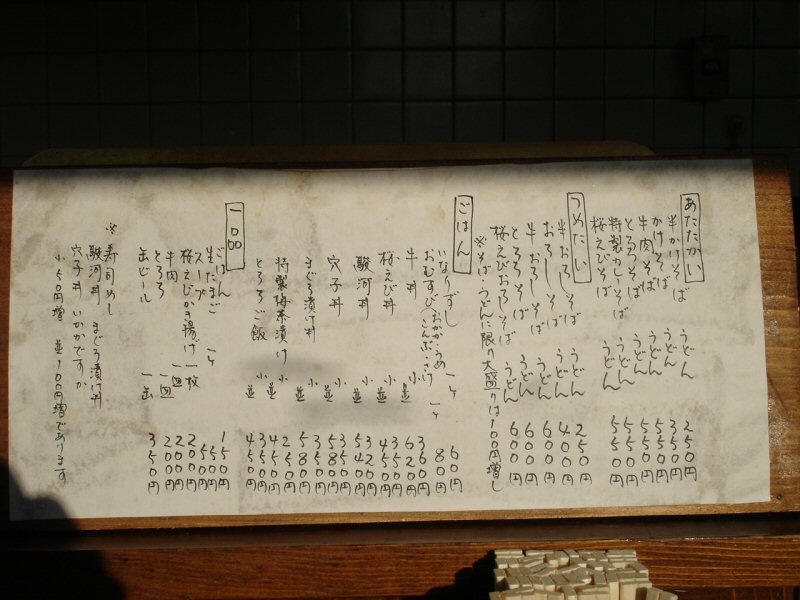 あたたかい
半かけそば うどん 250円
かけそば うどん 350円
牛肉そば うどん 550円
とろろそば うどん 550円
特製カレーそば うどん 550円
桜えびそば うどん 550円
つめたい
半おろしそば うどん 250円
おろしそば うどん 400円
牛おろしそば うどん 600円
とろろそば うどん 600円
桜えびおろしそば うどん 600円
※そば・うどんに限り大盛りは100円増し
ごはん
いなりずし 一ヶ 60円
おむすび(おかか・うめ こんぶ・さけ 一ヶ 80円
牛丼 小 360円
並 620円
桜えび丼 小 350円
並 450円
駿河丼 小 320円
並 540円
穴子丼 小 350円
並 580円
まぐろ漬け丼 小 350円
並 580円
特製梅茶漬け 小 250円
並 450円
とろろご飯 小 350円
並 450円
一品
ごはん 150円
生たまご 一ヶ 50円
スープ 50円
桜えびかき揚げ 一枚 200円
牛肉 一皿 200円
とろろ 一皿 200円
缶ビール 一缶 350円
※寿司めし
駿河丼 まぐろ漬け丼
穴子丼 いかがですか
小50円増 並100円増であります